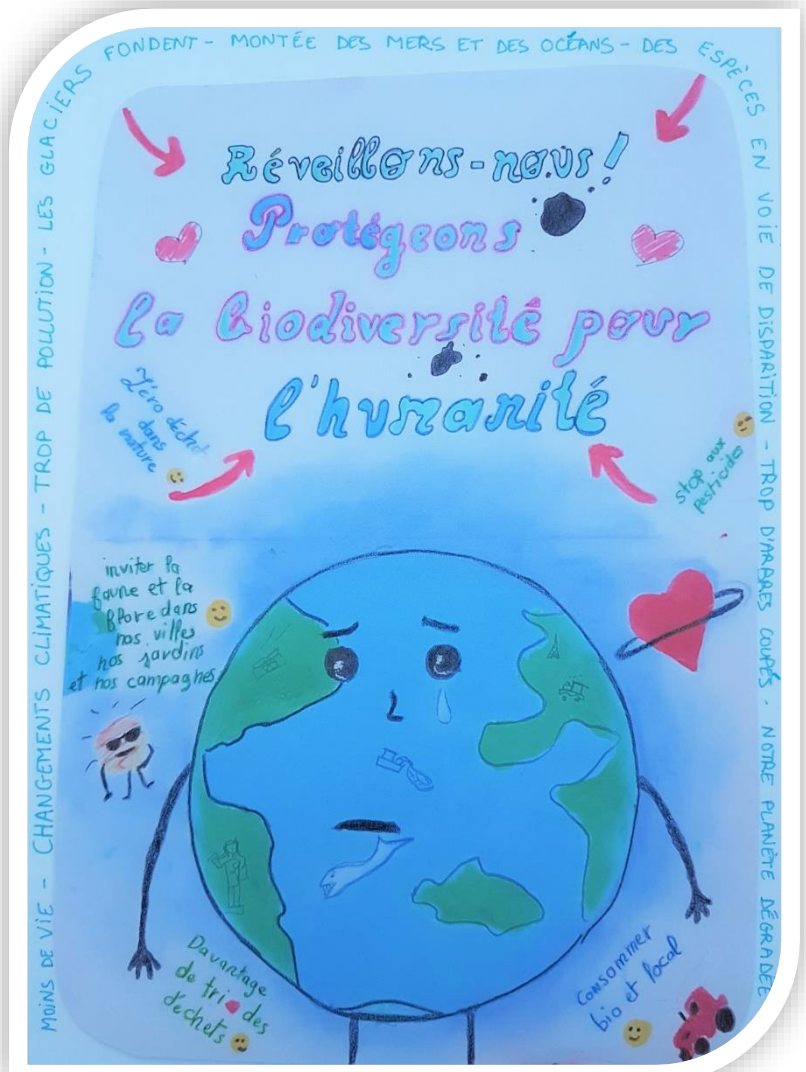 MOINS DE VIE - CHANGEMENTS CLIMATIQUES - TROP DE POLLUTION - LES GLACIERS FONDENT - MONTÉE DES MERS ET DES OCÉANS - DES ESPÈCES EN VOIE DE DISPARITION - TROP D'ARBRES COUPÉS - NOTRE PLANÈTE DÉGRADÉE
Réveillons-nous!
Protégeons
la biodiversité pour
l'humanité
Zéro déchet
dans
la nature
stop aux
pesticides
inviter la
faune et la
flore dans
nos villes
nos jardins
et nos campagnes
Davantage
de tri des
déchets
Consommer
bio et local